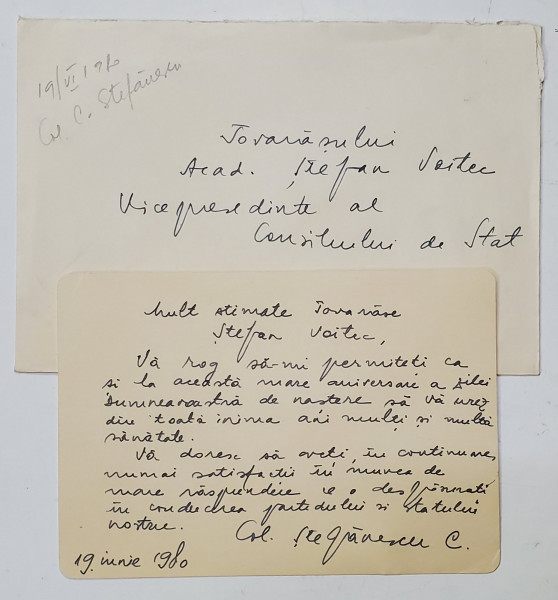 19/VI 1980
Col. C. Ștefănescu
Tovarășului
Acad. Ștefan Voitec
Vicepreședinte al
Consiliului de Stat
Mult stimate Tovarășe
Ștefan Voitec,
Vă rog să-mi permiteti ca
si la această mare aniversare a zilei
Dumneavoastră de naștere să vă urez
din toată inima ani mulți și multă
sănătate.
Vă doresc să aveti, în continuare,
numai satisfactii în munca de
mare răspundere ce o desfășurati
în conducerea partidului si statului
nostru.
Col. Ștefănescu C.
19 iunie 1980